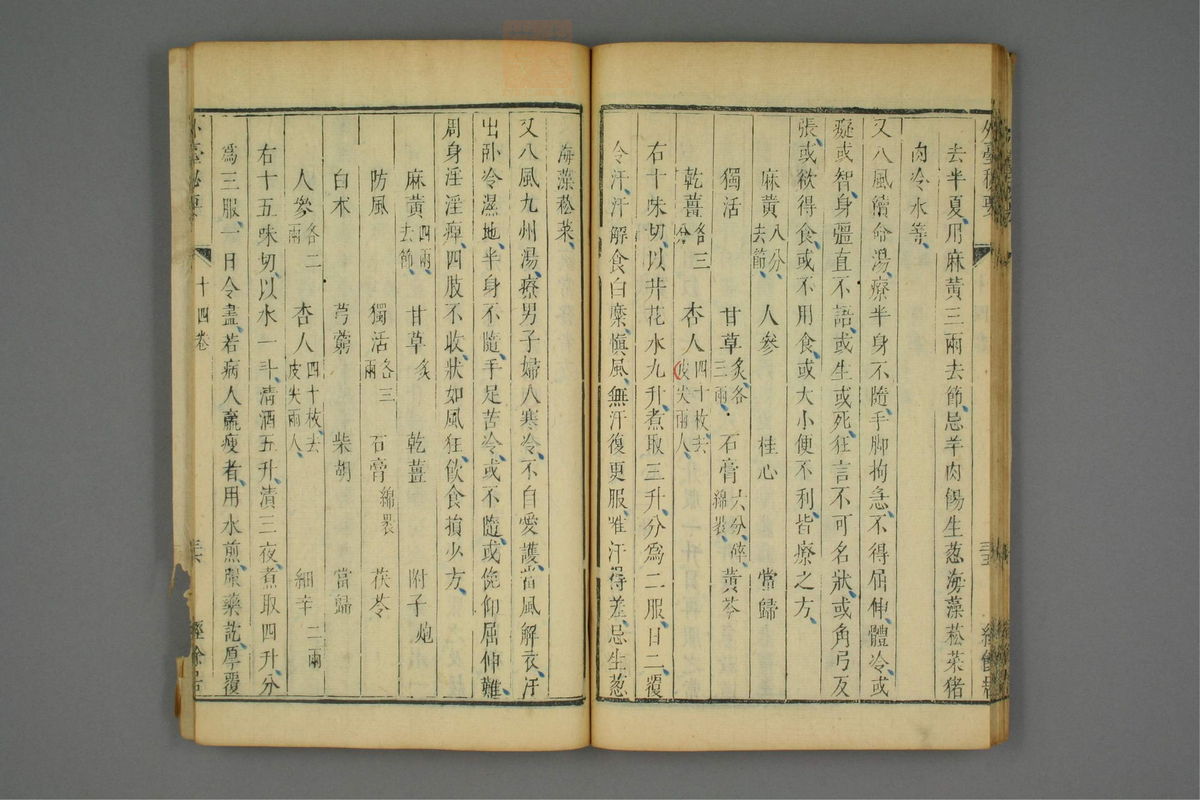 外臺秘要
去半夏用麻黃三兩去節忌羊肉餳生葱海藻菘菜猪
肉冷水等
又八風續命湯療半身不隨手脚拘急不得屈伸體冷或
癡或智身彊直不語或生或死狂言不可名狀或角弓反
張或欲得食或不用食或大小便不利皆療之方
麻黃八分去節 人參 桂心 當歸
獨活 甘草炙各三兩 石膏六分碎綿裹 黃芩
乾薑各三分 杏人四十枚去皮尖兩人
右十味切以井花水九升煮取三升分爲二服日二覆
令汗汗解食白糜愼風無汗復更服唯汗得差忌生葱
海藻菘菜
又八風九州湯療男子婦人寒冷不自愛護當風解衣汗
出卧冷濕地半身不隨手足苦冷或不隨或俛仰屈伸難
周身淫淫痺四肢不收狀如風狂飲食損少方
麻黃四兩去節 甘草炙 乾薑 附子炮
防風 獨活各三兩 石膏綿裹 茯苓
白朮 芎藭 柴胡 當歸
人參各二兩 杏人四十枚去皮尖兩人 細辛二兩
右十五味切以水一斗清酒五升漬三夜煮取四升分
爲三服一日令盡若病人羸瘦者用水煎服藥訖厚覆
外臺秘要 十四卷 經餘居